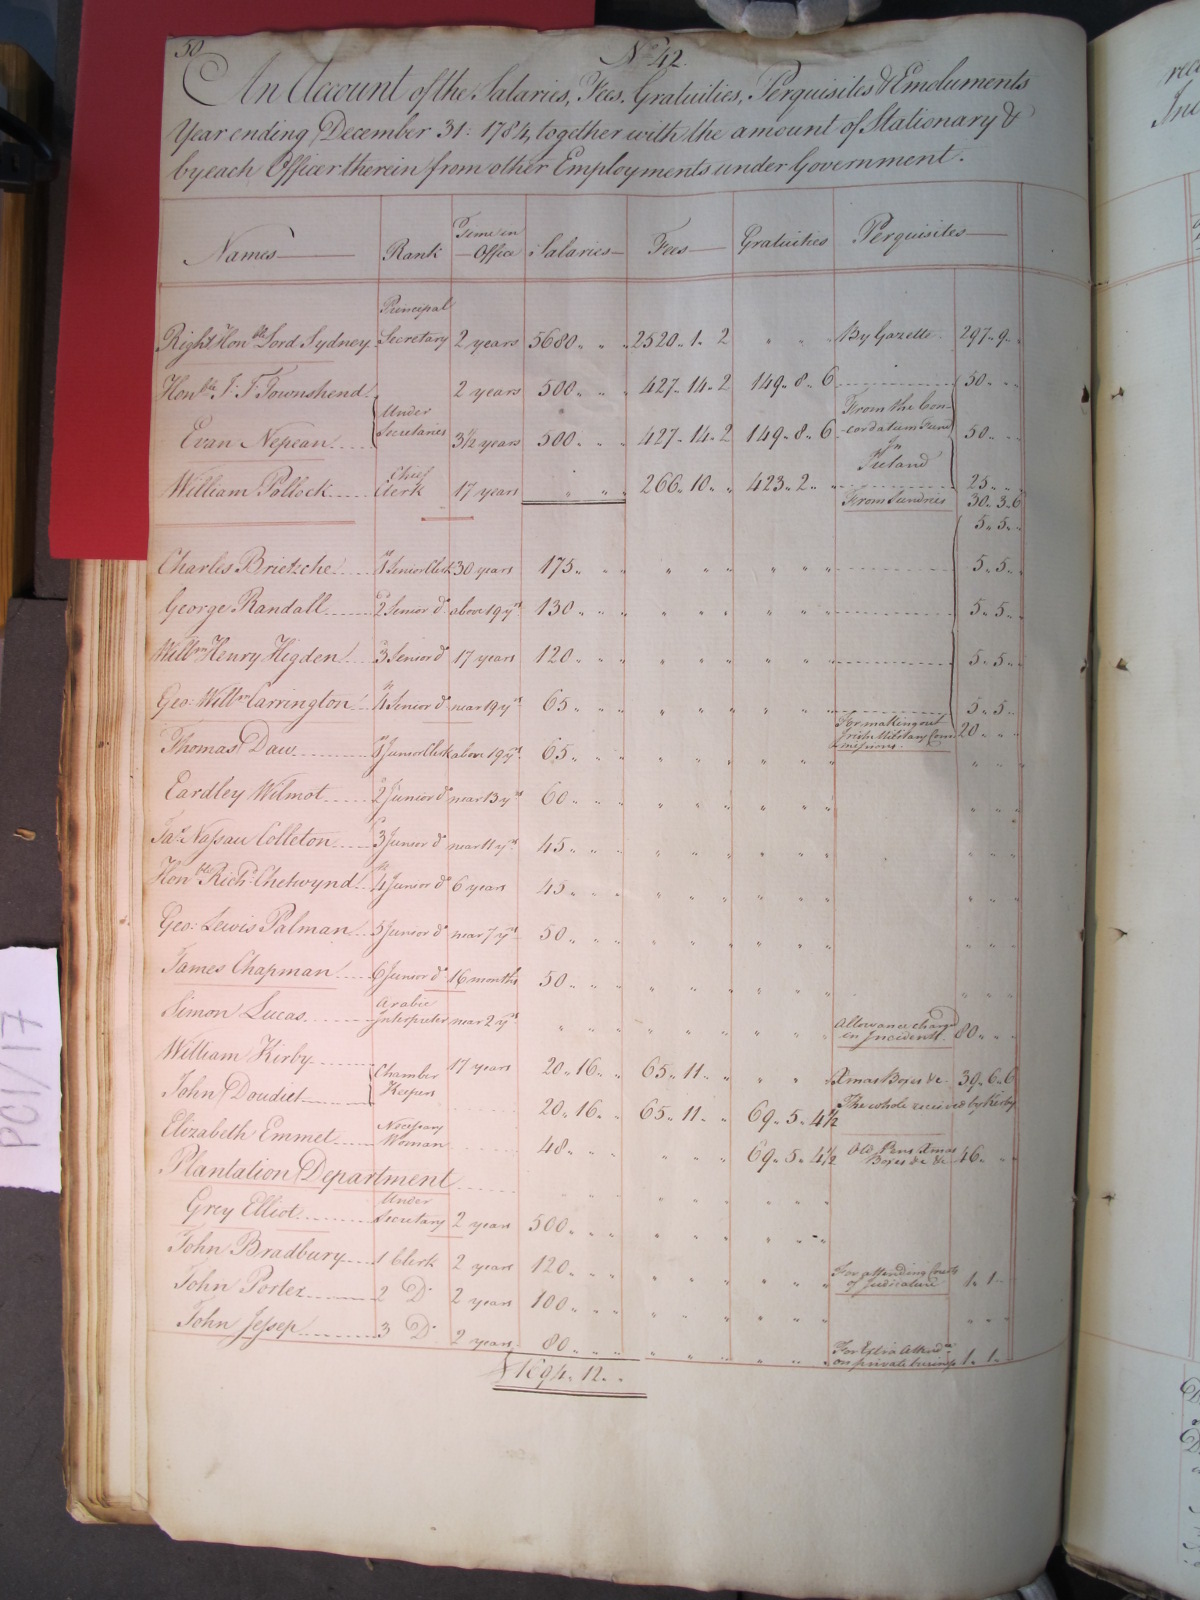 50
No. 42
An Account of the Salaries, Fees, Gratuities, Perquisites & Emoluments
Year ending December 31: 1784, together with the amount of Stationary &
by each Officer therein from other Employments under Government.
Names Rank Time in Office Salaries Fees Gratuities Perquisites
Right Honble Lord Sydney Principal Secretary 2 years 5680 " " 2520 " 1 " 2 " " " By Gazette 297 " 9 "
Honble J: T: Townshend 2 years 500 " " 427 " 14 " 2 149 " 8 " 6 50 " "
Evan Nepean Under Secretaries 3 1/2 years 500 " " 427 " 14 " 2 149 " 8 " 6 From the Concordatum Fund In Ireland 50 " "
William Pollock Chief Clerk 17 years " " " 266 " 10 " " 423 " 2 " " 25 " "
From Sundries 30 " 3 " 6
5 " 5 "
Charles Brietzche 1st Senior Clerk 30 years 175 " " " " " " " " 5 " 5 "
George Randall 2d Senior do above 19 yrs 130 " " " " " " " " 5 " 5 "
Willm Henry Higden 3d Senior do 17 years 120 " " " " " " " " 5 " 5 "
Geo: Willm Carrington 4th Senior do near 19 yrs 65 " " " " " " " " 5 " 5 "
Thomas Daw 1st Junior Clerk above 19 yrs 65 " " " " " " " " For making out Irish Military Commissions 20 " "
Eardley Wilmot 2d Junior do near 13 yrs 60 " " " " " " " "
Jas Nassau Colleton 3d Junior do near 11 yrs 45 " " " " " " " "
Honble Richd Chetwynd 4th Junior do 6 years 45 " " " " " " " "
Geo: Lewis Palman 5 Junior do near 7 yrs 50 " " " " " " " "
James Chapman 6 Junior do 16 months 50 " " " " " " " "
Simon Lucas Arabic Interpreter near 2 yrs " " " " " " " " " Allowance charged in Incidents 80 " "
William Kirby 17 years 20 " 16 " " 65 " 11 " " " " " Xmas Boxes &c 39 " 6 " 6
John Doudiet Chamber Keepers 20 " 16 " " 65 " 11 " " 69 " 5 " 4 1/2 The whole received by Kirby
Elizabeth Emmet Necessary Woman 48 " " " " " 69 " 5 " 4 1/2 Old Pens Xmas Boxes &c &c 46 " "
Plantation Department
Grey Elliot Under Secretary 2 years 500 " " " " " " " "
John Bradbury 1 Clerk 2 years 120 " " " " " " " " For attending Courts of Judicature 1 " 1 "
John Porter 2 Do 2 years 100 " " " " " " " "
John Jessep 3 Do 2 years 80 " " " " " " " " For Extra Attendce on private business 1 " 1 "
12 "
PC1/17